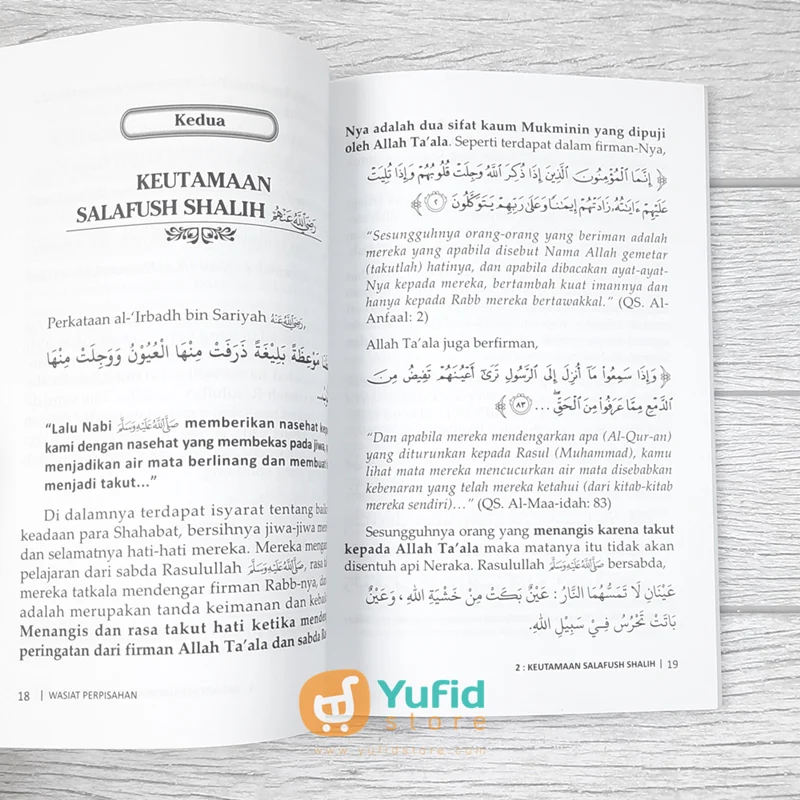 Kedua
KEUTAMAAN
SALAFUSH SHALIH رضي الله عنهم
Perkataan al-'Irbadh bin Sariyah رضي الله عنه,
مَوْعِظَةً بَلِيْغَةً ذَرَفَتْ مِنْهَا الْعُيُوْنُ وَوَجِلَتْ مِنْهَا
"Lalu Nabi صلى الله عليه وسلم memberikan nasehat
kami dengan nasehat yang membekas pada jiwa,
menjadikan air mata berlinang dan
menjadi takut..."
Di dalamnya terdapat isyarat tentang
keadaan para Shahabat, bersihnya jiwa-jiwa
dan selamatnya hati-hati mereka. Mereka
pelajaran dari sabda Rasulullah صلى الله عليه وسلم, rasa
mereka tatkala mendengar firman Rabb-nya,
adalah merupakan tanda keimanan dan
Menangis dan rasa takut hati ketika
peringatan dari firman Allah Ta'ala dan sabda
18 | WASIAT PERPISAHAN
Nya adalah dua sifat kaum Mukminin yang dipuji
oleh Allah Ta'ala. Seperti terdapat dalam firman-Nya,
﴿ إِنَّمَا الْمُؤْمِنُونَ الَّذِينَ إِذَا ذُكِرَ اللَّهُ وَجِلَتْ قُلُوبُهُمْ وَإِذَا تُلِيَتْ
عَلَيْهِمْ ءَايَٰتُهُۥ زَادَتْهُمْ إِيمَٰنًا وَعَلَىٰ رَبِّهِمْ يَتَوَكَّلُونَ ٢ ﴾
"Sesungguhnya orang-orang yang beriman adalah
mereka yang apabila disebut Nama Allah gemetar
(takutlah) hatinya, dan apabila dibacakan ayat-ayat-
Nya kepada mereka, bertambah kuat imannya dan
hanya kepada Rabb mereka bertawakkal." (QS. Al-
Anfaal: 2)
Allah Ta'ala juga berfirman,
﴿ وَإِذَا سَمِعُوا۟ مَآ أُنزِلَ إِلَى الرَّسُولِ تَرَىٰٓ أَعْيُنَهُمْ تَفِيضُ مِنَ
الدَّمْعِ مِمَّا عَرَفُوا۟ مِنَ الْحَقِّ ... ٨٣ ﴾
"Dan apabila mereka mendengarkan apa (Al-Qur-an)
yang diturunkan kepada Rasul (Muhammad), kamu
lihat mata mereka mencucurkan air mata disebabkan
kebenaran yang telah mereka ketahui (dari kitab-kitab
mereka sendiri)..." (QS. Al-Maa-idah: 83)
Sesungguhnya orang yang menangis karena takut
kepada Allah Ta'ala maka matanya itu tidak akan
disentuh api Neraka. Rasulullah صلى الله عليه وسلم bersabda,
عَيْنَانِ لَا تَمَسُّهُمَا النَّارُ : عَيْنٌ بَكَتْ مِنْ خَشْيَةِ اللهِ ، وَعَيْنٌ
بَاتَتْ تَحْرُسُ فِيْ سَبِيْلِ اللهِ.
2 : KEUTAMAAN SALAFUSH SHALIH | 19
Yufid
store
www.yufidstore.com